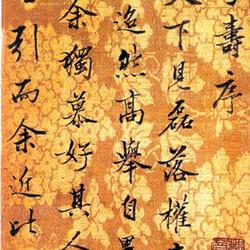 壽序
天下見磊落權
迨然高舉自
余獨慕好其人
引而余近比